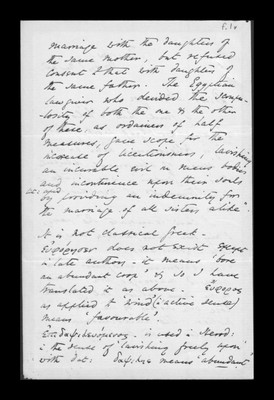 marriage with the daughters of
the same mother, but refused
consent to that with daughters of
the same father. The Egyptian
lawgiver who derided the
of both the one & the other
of these, as ordainers of half
measures, gave scope for the
increase of licentiousness, lavishing
an incurable evil on mens bodies
and incontinence upon their souls
by providing an indemnity for
the marriage of all sisters alike".
It is not classical Greek.
does not exist except
in late authors. It means 'bore
an abundant crop' & so I have
translated it as above.
as applied to 'wind' (: active sense)
means 'favourable'.
is used in Herod:
in the sense of 'lavishing freely upon'
with dat: δαψιλης means 'abundant'